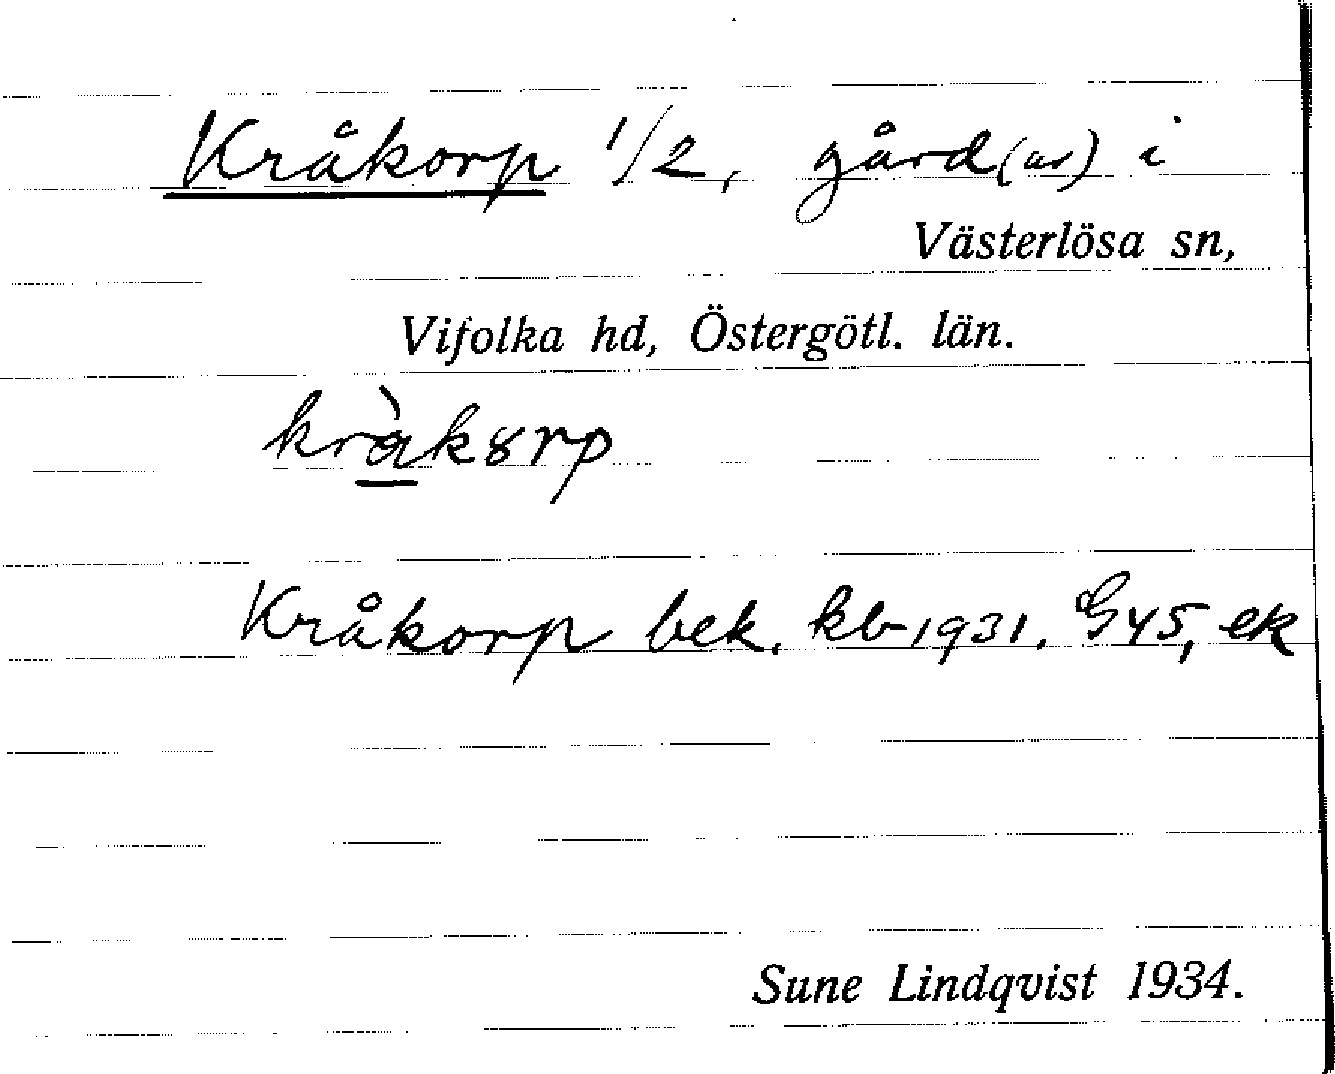 Kråkorp 1/2, gård(ar) i
Västerlösa sn,
Vifolka hd, Östergötl. län.
Kråkorp bek. kb 1931. G45, ek
Sune Lindqvist 1934.